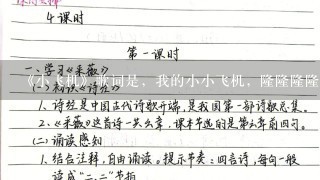 4课时
第一课时
一、学习《采薇》
《小飞机》歌词是，我的小小飞机，隆隆隆隆
1. 诗经是中国古代诗歌开端,是我国第一部诗歌总集。
2. 《采薇》这首诗一共六章，课本节选的是第六章前四句。
(二) 诵读感知
1. 结合注释,自由诵读。提示节奏:四言诗,每句一般
读成“二、二”节拍